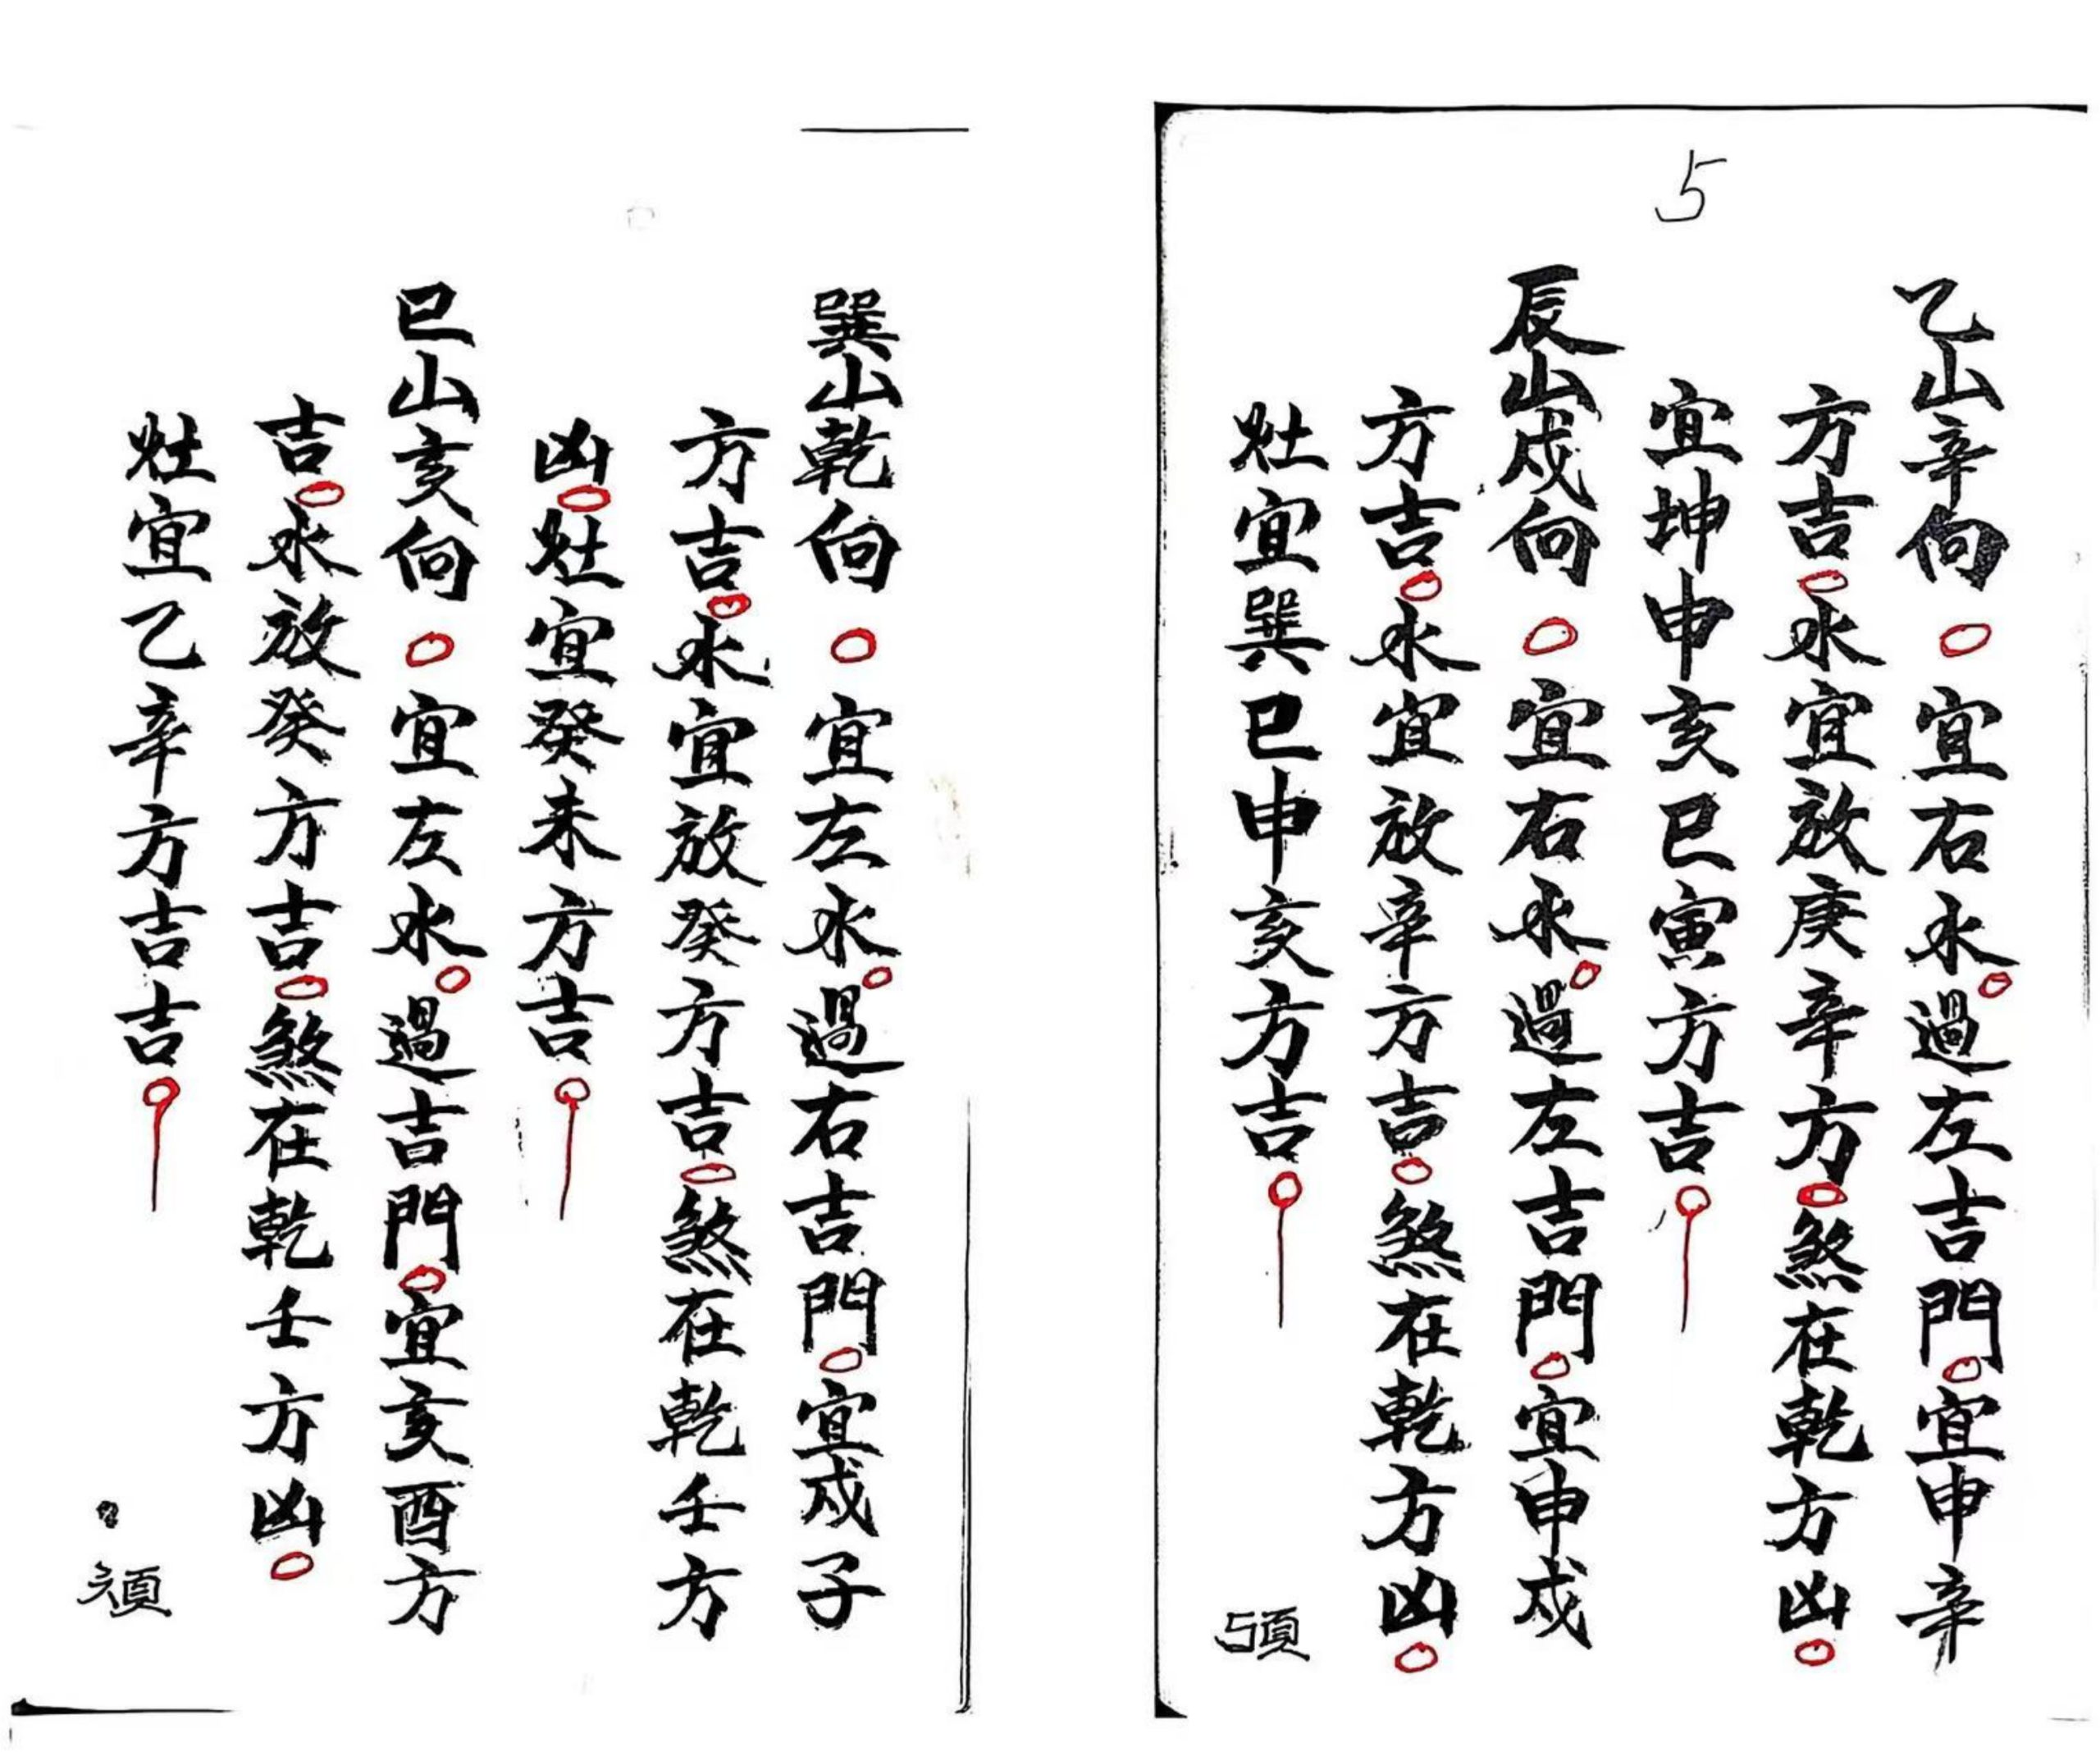 5
乙山辛向○宜右水○過左吉門○宜申辛
方吉○水宜放庚辛方○煞在乾方凶○
宜坤申亥巳寅方吉○
辰山戌向○宜右水○過左吉門○宜申戌
方吉○水宜放辛方吉○煞在乾方凶○
灶宜巽巳申亥方吉○
5頁
巽山乾向○宜左水○過右吉門○宜戌子
方吉○水宜放癸方吉○煞在乾壬方
凶○灶宜癸未方吉○
巳山亥向○宜左水○過吉門○宜亥酉方
吉○水放癸方吉○煞在乾壬方凶○
灶宜乙辛方吉吉○